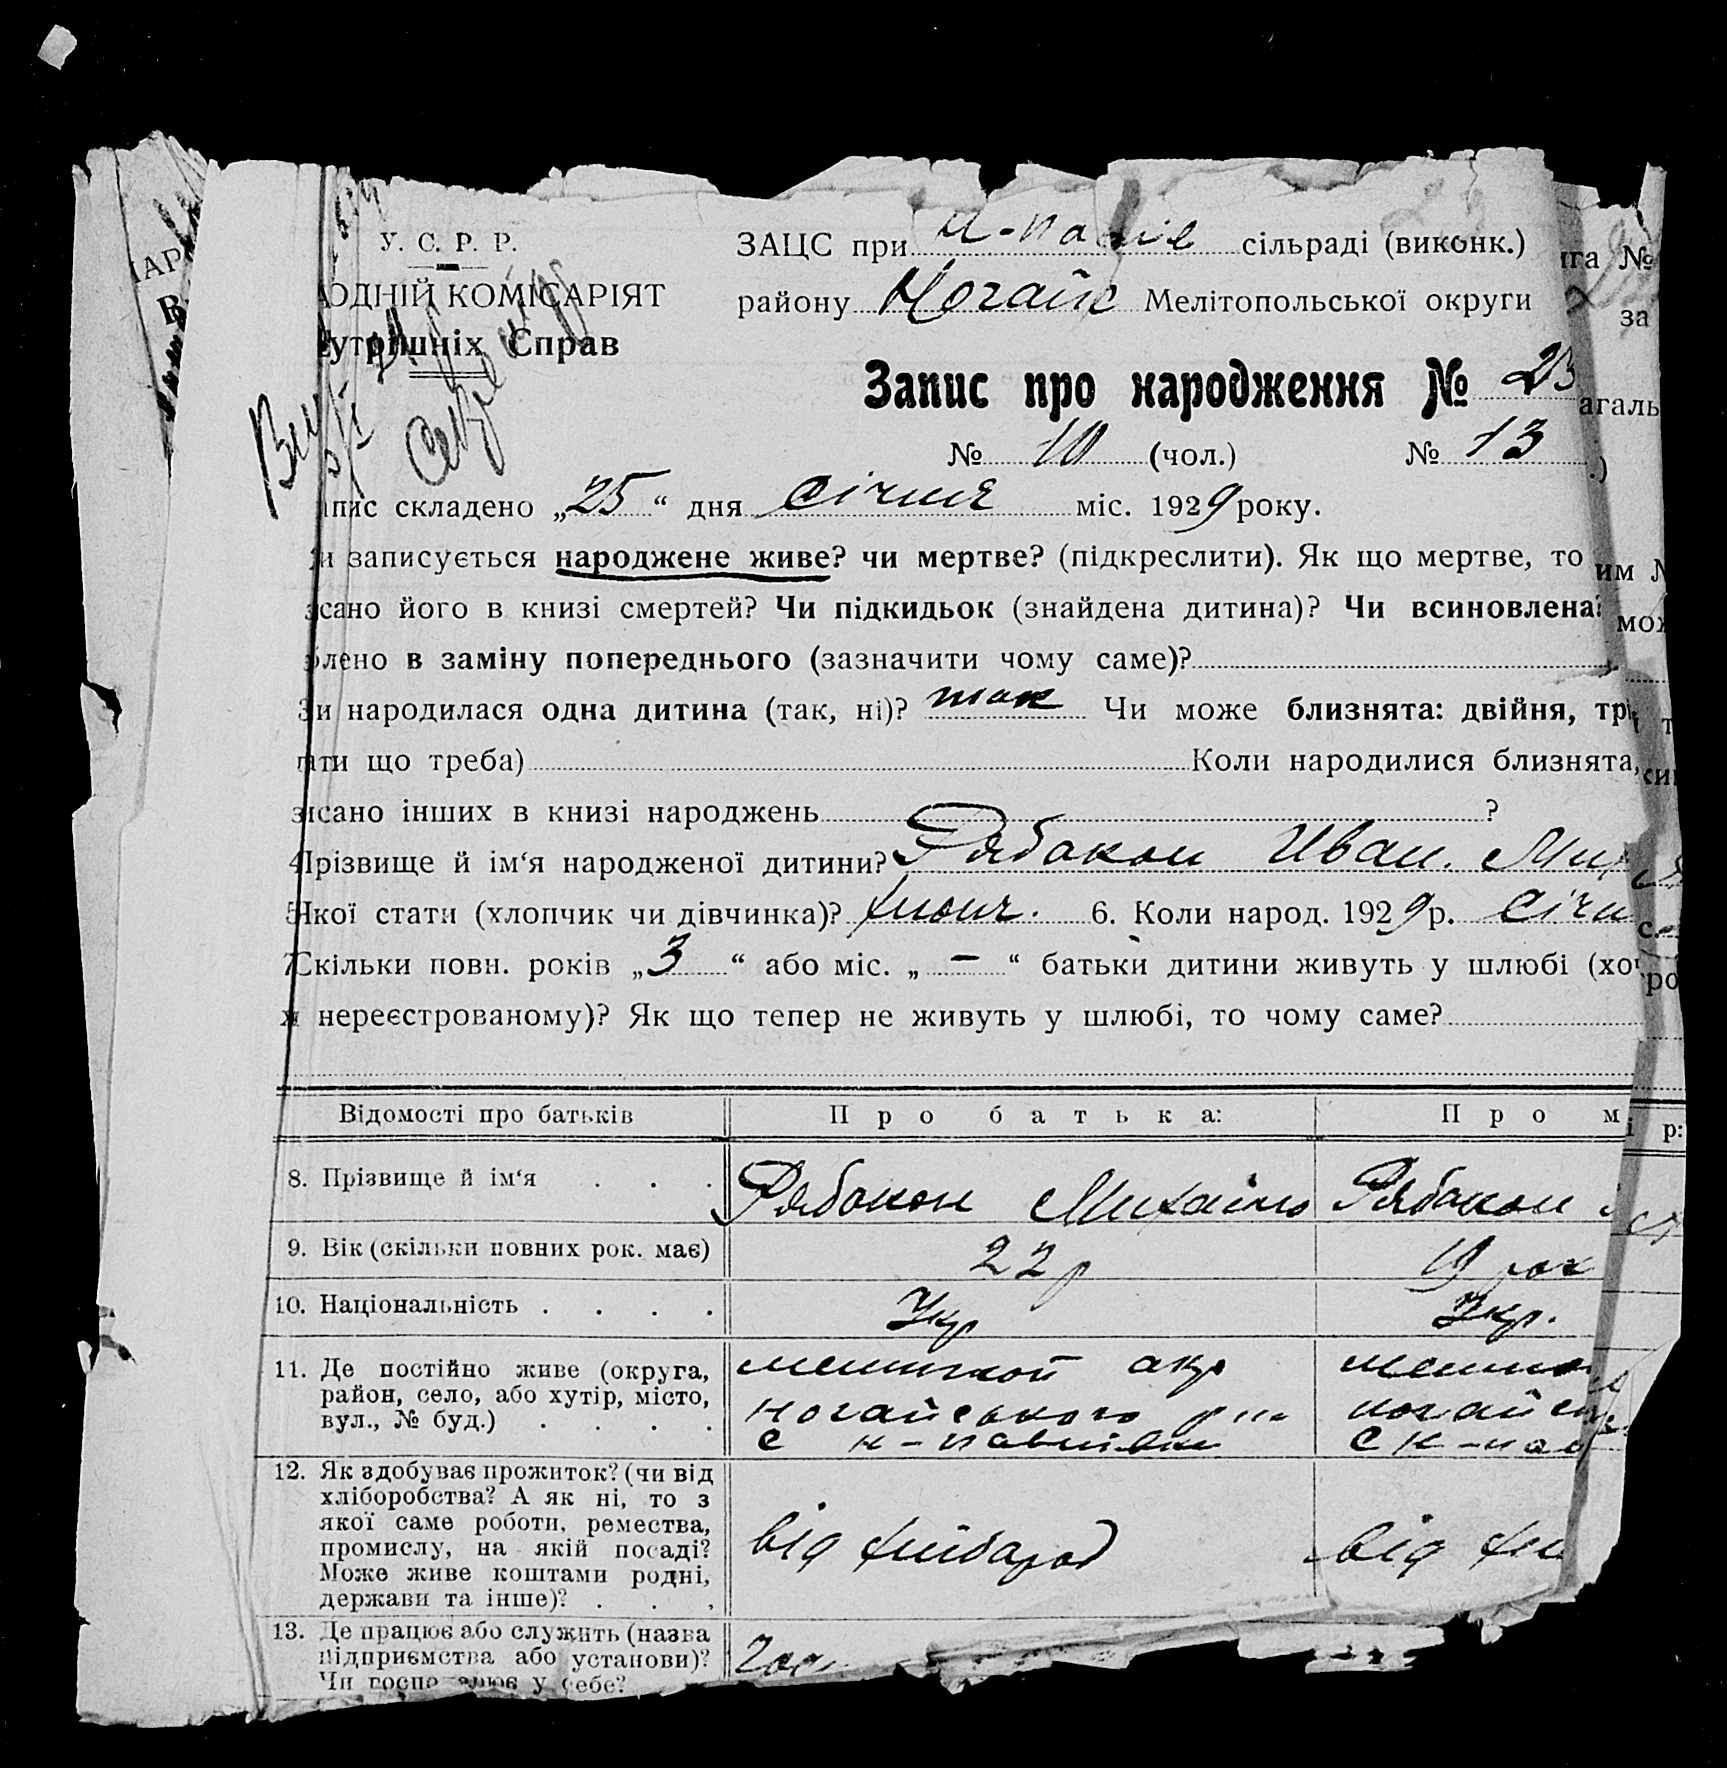 У. С. Р. Р.
ОДНІЙ КОМІСАРІЯТ
утрішніх Справ
ЗАЦС при сільраді (виконк.)
району Ногайс Мелітопольської округи
Запис про народження № 23
№ 10 (чол.) № 13
апис складено „25“ дня січня міс. 1929 року.
и записується народжене живе? чи мертве? (підкреслити). Як що мертве, то
исано його в книзі смертей? Чи підкидьок (знайдена дитина)? Чи всиновлена?
блено в заміну попереднього (зазначити чому саме)?
3и народилася одна дитина (так, ні)? так Чи може близнята: двійня, трі
ати що треба) Коли народилися близнята,
исано інших в книзі народжень ?
4Прізвище й ім‘я народженої дитини? Рябокон Иван. Мих
5Якої стати (хлопчик чи дівчинка)? хлопч. 6. Коли народ. 1929 р. січн
7Скільки повн. років „3“ або міс. „–“ батьки дитини живуть у шлюбі (хоч
и нереєстрованому)? Як що тепер не живуть у шлюбі, то чому саме?
Відомості про батьків Про батька: Про м
8. Прізвище й ім‘я . . . Рябокон Михайло Рябокон
9. Вік (скільки повних рок. має) 22 р 19 рок
10. Національність . . . . Укр Укр.
11. Де постійно живе (округа,
район, село, або хутір, місто,
вул., № буд.) . . . .
окр
ногайського
с н-павлівки
ногайс
с н-пав
12. Як здобуває прожиток? (чи від
хліборобства? А як ні, то з
якої саме роботи, ремества,
промислу, на якій посаді?
Може живе коштами родні,
держави та інше)? . . .
від хлібороб
від хлі
13. Де працює або служить (назва
підприємства або установи)?
Чи госпо у себе?